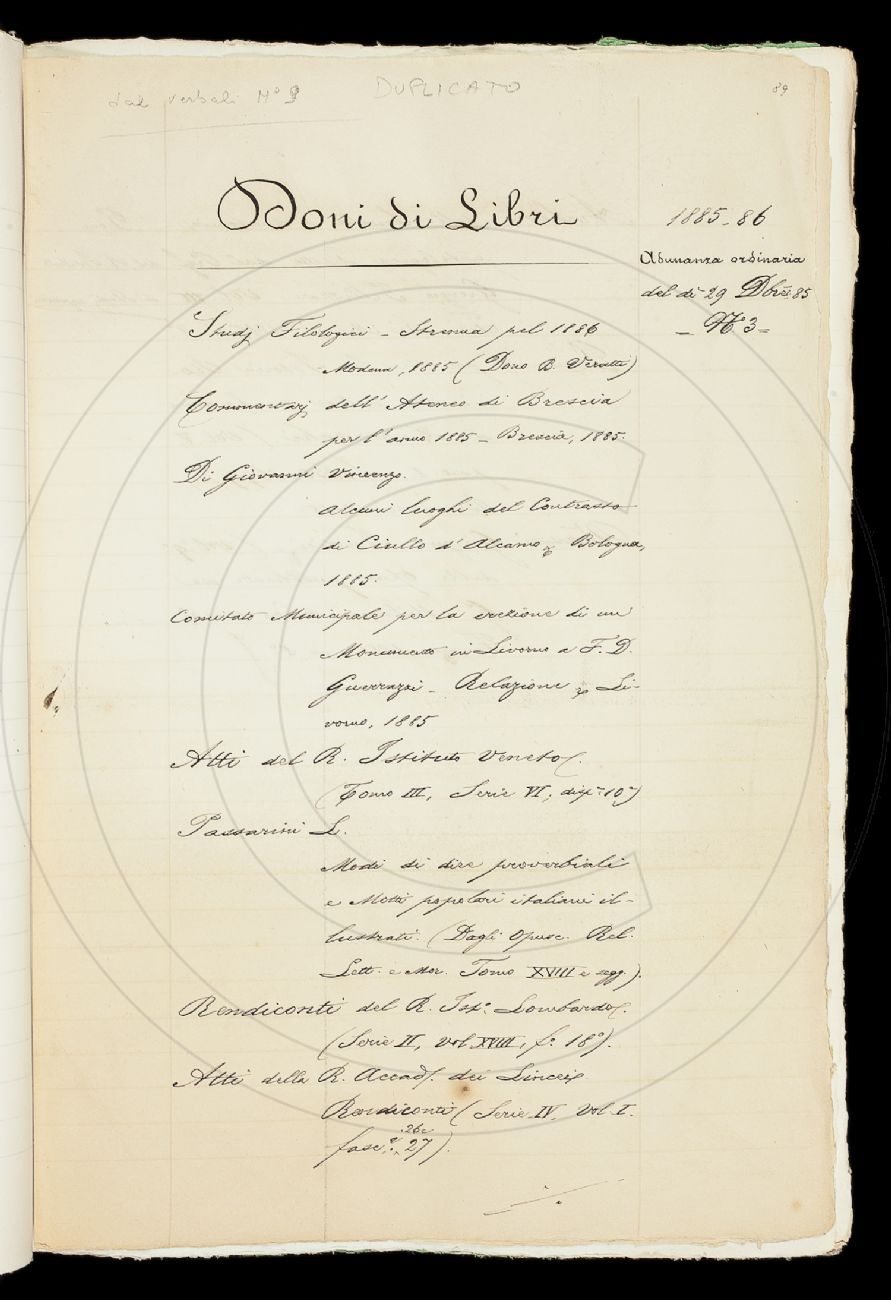 dal verbali N° 9
DUPLICATO
89
Doni di Libri
1885-86
Adunanza ordinaria
del dì 29 Dbre 85
- N.° 3 -
Studj Filologici - Strenna pel 1886
Modena, 1885 (Dono B. Veratti)
Commentarj dell' Ateneo di Brescia
per l'anno 1885 - Brescia, 1885.
Di Giovanni Vincenzo.
Alcuni luoghi del Contrasto
di Ciullo d'Alcamo, Bologna,
1885.
Comitato Municipale per la erezione di un
Monumento in Livorno a F. D.
Guerrazzi - Relazione, Li-
vorno, 1885
Atti del R. Istituto Veneto.
(Tomo III, Serie VI, disp.ª 10ª)
Passarini L.
Modi di dire proverbiali
e Motti popolari italiani il-
lustrati. (Dagli Opusc. Rel.
Lett. e Mor. Tomo XVIII e segg.).
Rendiconti del R. Ist.° Lombardo.
(Serie II, vol XVIII, f.° 18°).
Atti della R. Accad. dei Lincei
Rendiconti (Serie IV. Vol. I.
fasc. 26 e 27).